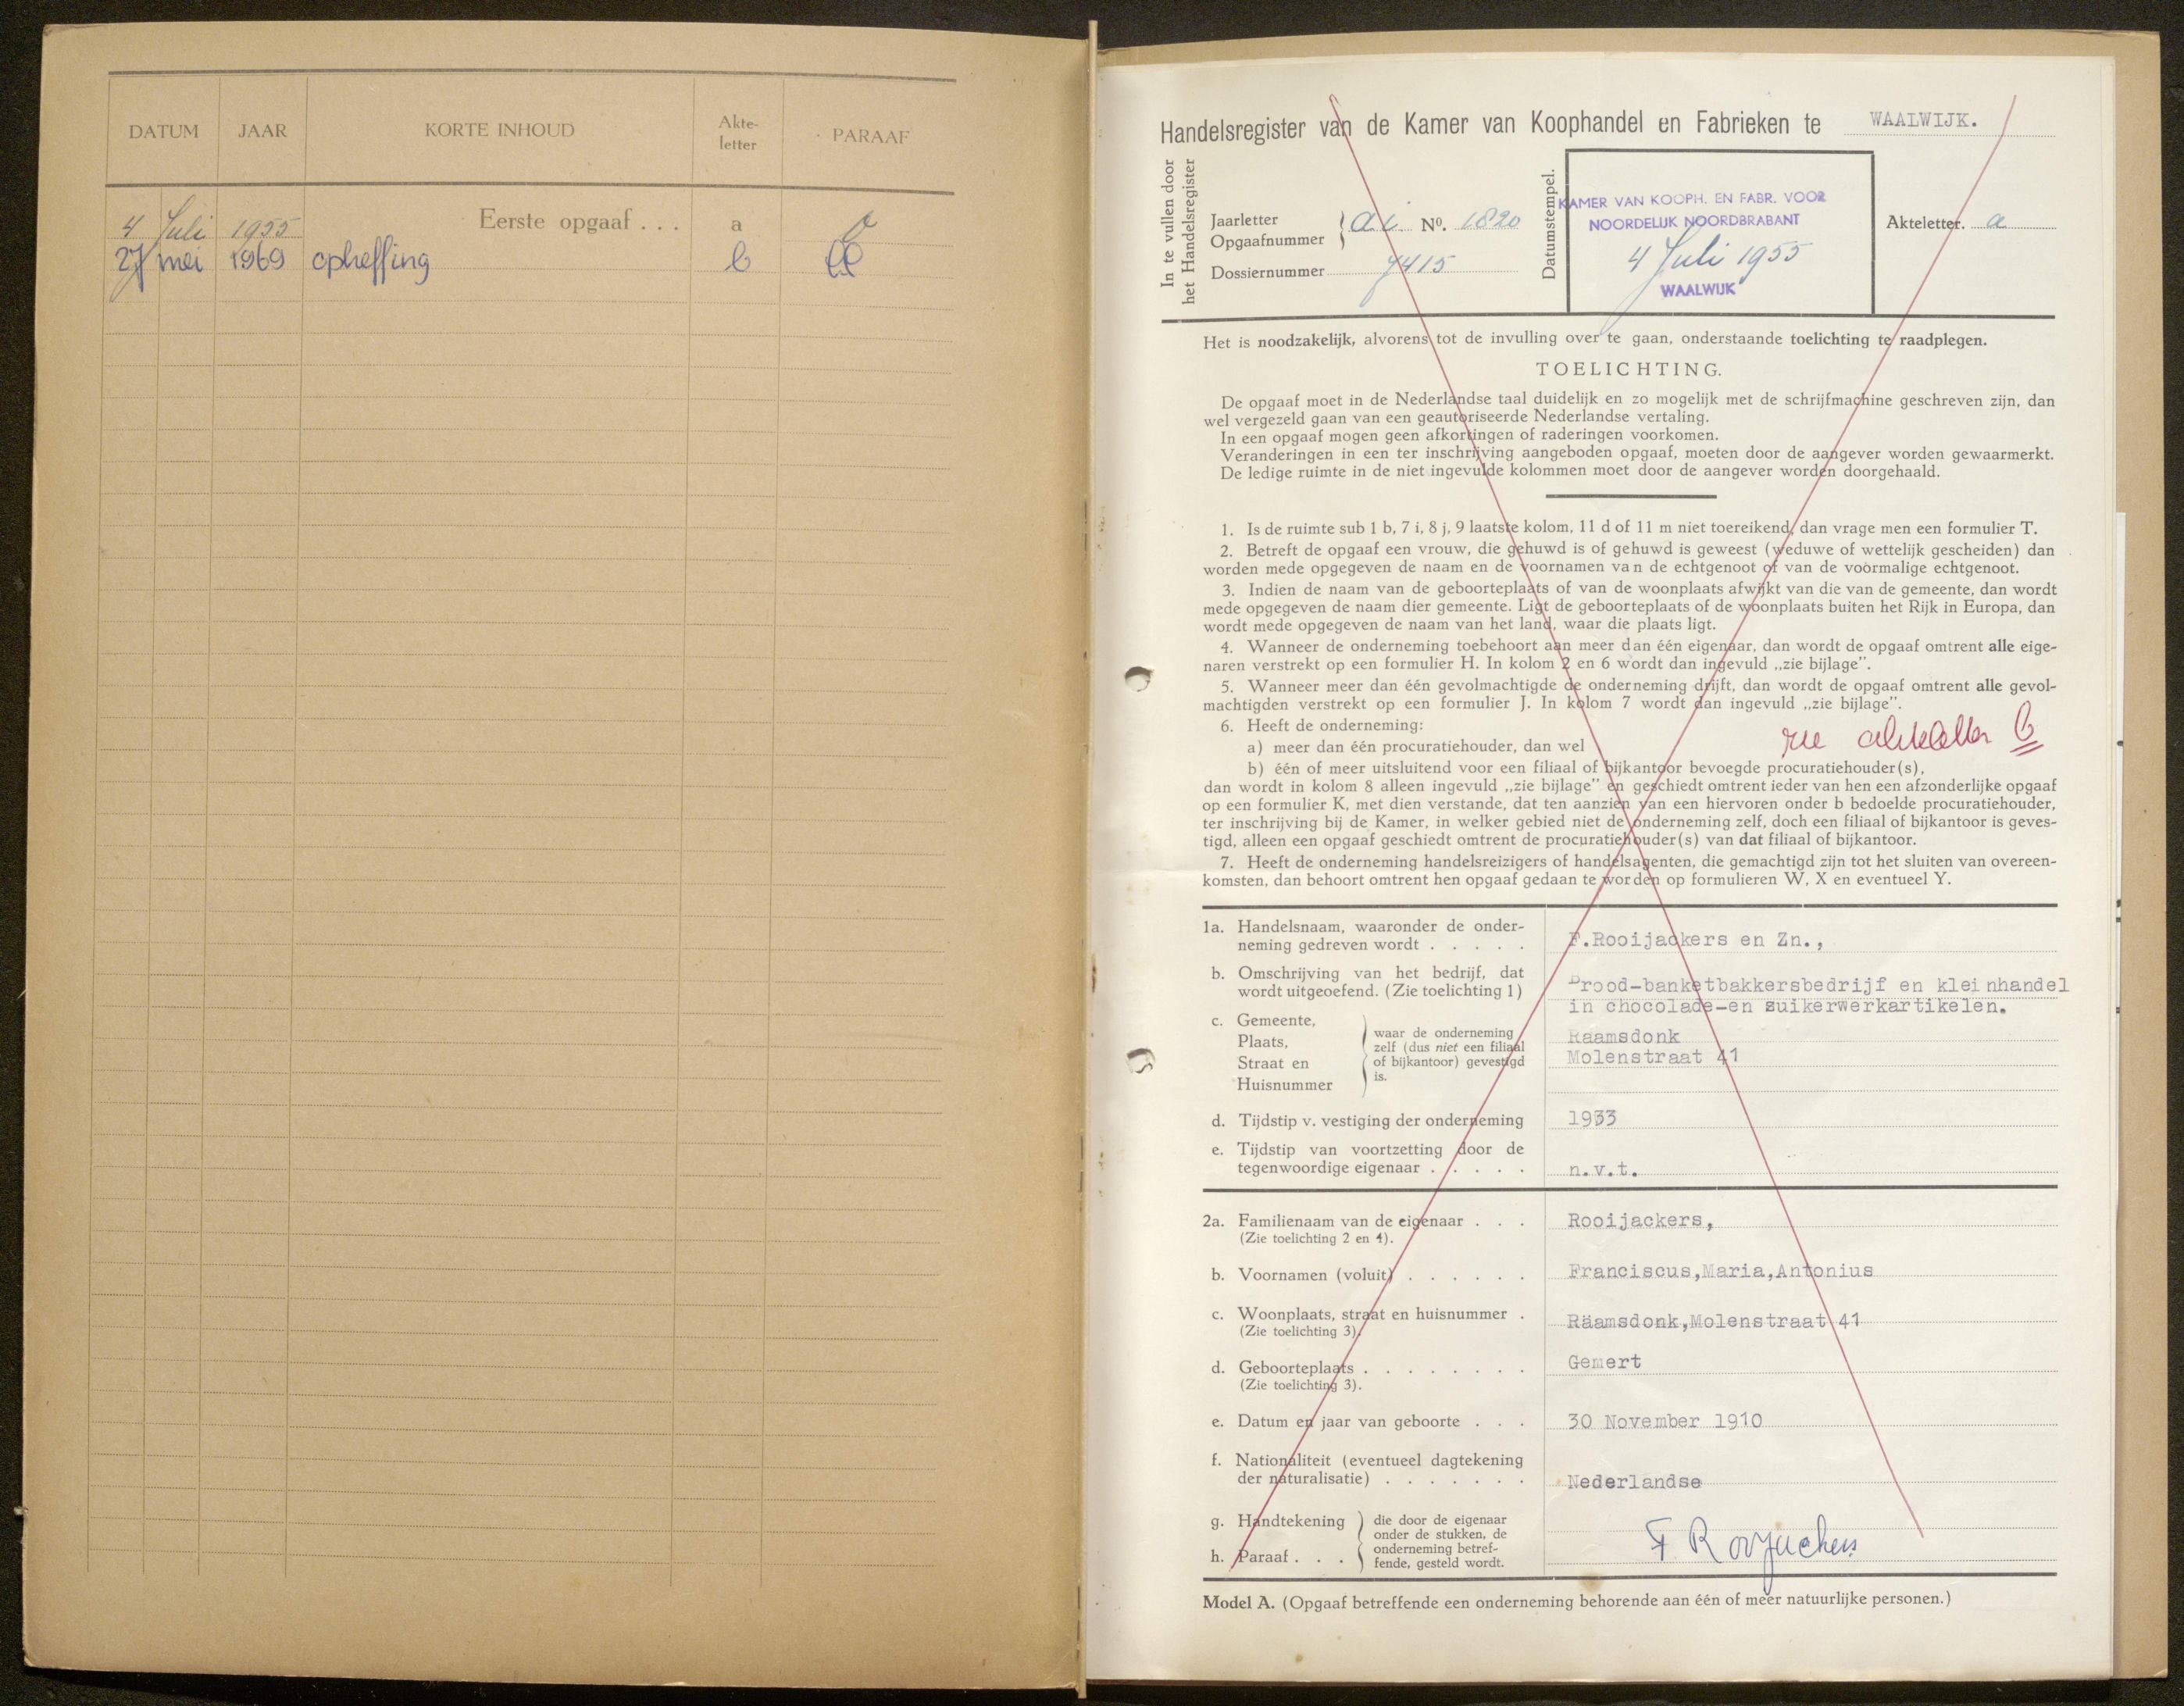 DATUM JAAR KORTE INHOUD Akte-letter PARAAF
4 Juli 1955 Eerste opgaaf . . . a
27 mei 1969 opheffing b
Handelsregister van de Kamer van Koophandel en Fabrieken te WAALWIJK.
In te vullen door
het Handelsregister
Jaarletter
Opgaafnummer } ai No. 1820
Dossiernummer 7415
Datumstempel.
KAMER VAN KOOPH. EN FABR. VOOR
NOORDELIJK NOORDBRABANT
4 Juli 1955
WAALWIJK
Akteletter. a
Het is noodzakelijk, alvorens tot de invulling over te gaan, onderstaande toelichting te raadplegen.
TOELICHTING.
De opgaaf moet in de Nederlandse taal duidelijk en zo mogelijk met de schrijfmachine geschreven zijn, dan
wel vergezeld gaan van een geautoriseerde Nederlandse vertaling.
In een opgaaf mogen geen afkortingen of raderingen voorkomen.
Veranderingen in een ter inschrijving aangeboden opgaaf, moeten door de aangever worden gewaarmerkt.
De ledige ruimte in de niet ingevulde kolommen moet door de aangever worden doorgehaald.
1. Is de ruimte sub 1 b, 7 i, 8 j, 9 laatste kolom, 11 d of 11 m niet toereikend, dan vrage men een formulier T.
2. Betreft de opgaaf een vrouw, die gehuwd is of gehuwd is geweest (weduwe of wettelijk gescheiden) dan
worden mede opgegeven de naam en de voornamen van de echtgenoot of van de voormalige echtgenoot.
3. Indien de naam van de geboorteplaats of van de woonplaats afwijkt van die van de gemeente, dan wordt
mede opgegeven de naam dier gemeente. Ligt de geboorteplaats of de woonplaats buiten het Rijk in Europa, dan
wordt mede opgegeven de naam van het land, waar die plaats ligt.
4. Wanneer de onderneming toebehoort aan meer dan één eigenaar, dan wordt de opgaaf omtrent alle eige-
naren verstrekt op een formulier H. In kolom 2 en 6 wordt dan ingevuld „zie bijlage”.
5. Wanneer meer dan één gevolmachtigde de onderneming drijft, dan wordt de opgaaf omtrent alle gevol-
machtigden verstrekt op een formulier J. In kolom 7 wordt dan ingevuld „zie bijlage”.
6. Heeft de onderneming:
zie akteletter b
a) meer dan één procuratiehouder, dan wel
b) één of meer uitsluitend voor een filiaal of bijkantoor bevoegde procuratiehouder(s),
dan wordt in kolom 8 alleen ingevuld „zie bijlage” en geschiedt omtrent ieder van hen een afzonderlijke opgaaf
op een formulier K, met dien verstande, dat ten aanzien van een hiervoren onder b bedoelde procuratiehouder,
ter inschrijving bij de Kamer, in welker gebied niet de onderneming zelf, doch een filiaal of bijkantoor is geves-
tigd, alleen een opgaaf geschiedt omtrent de procuratiehouder(s) van dat filiaal of bijkantoor.
7. Heeft de onderneming handelsreizigers of handelsagenten, die gemachtigd zijn tot het sluiten van overeen-
komsten, dan behoort omtrent hen opgaaf gedaan te worden op formulieren W, X en eventueel Y.
1a. Handelsnaam, waaronder de onder-
neming gedreven wordt . . . . . F.Rooijackers en Zn.,
b. Omschrijving van het bedrijf, dat
wordt uitgeoefend. (Zie toelichting 1)
Brood-banketbakkersbedrijf en kleinhandel
in chocolade-en suikerwerkartikelen.
c. Gemeente,
Plaats,
Straat en
Huisnummer
waar de onderneming
zelf (dus niet een filiaal
of bijkantoor) gevestigd
is.
Raamsdonk
Molenstraat 41
d. Tijdstip v. vestiging der onderneming 1933
e. Tijdstip van voortzetting door de
tegenwoordige eigenaar . . . . . n.v.t.
2a. Familienaam van de eigenaar . . . Rooijackers,
(Zie toelichting 2 en 4).
b. Voornamen (voluit) . . . . . . Franciscus,Maria,Antonius
c. Woonplaats, straat en huisnummer . Räamsdonk,Molenstraat 41
(Zie toelichting 3).
d. Geboorteplaats . . . . . . . . Gemert
(Zie toelichting 3).
e. Datum en jaar van geboorte . . . 30 November 1910
f. Nationaliteit (eventueel dagtekening
der naturalisatie) . . . . . . . Nederlandse
g. Handtekening
h. Paraaf . . .
die door de eigenaar
onder de stukken, de
onderneming betref-
fende, gesteld wordt.
F Rooyackers
Model A. (Opgaaf betreffende een onderneming behorende aan één of meer natuurlijke personen.)